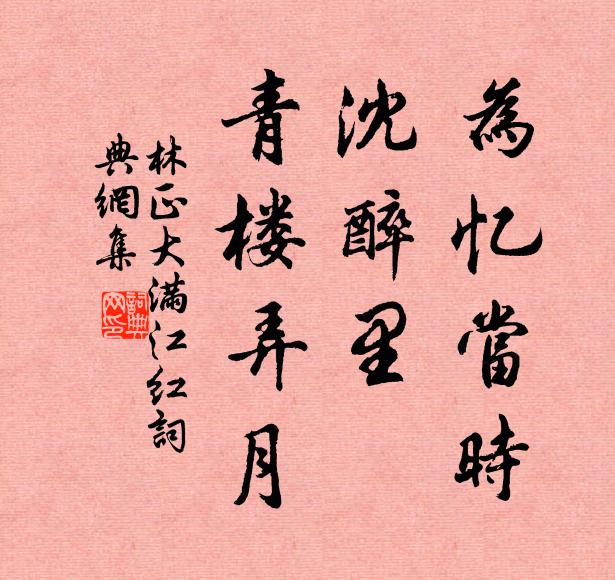 為忆當時
沈醉里
青楼弄月
林正大满江红詞
典網集
詞典網印